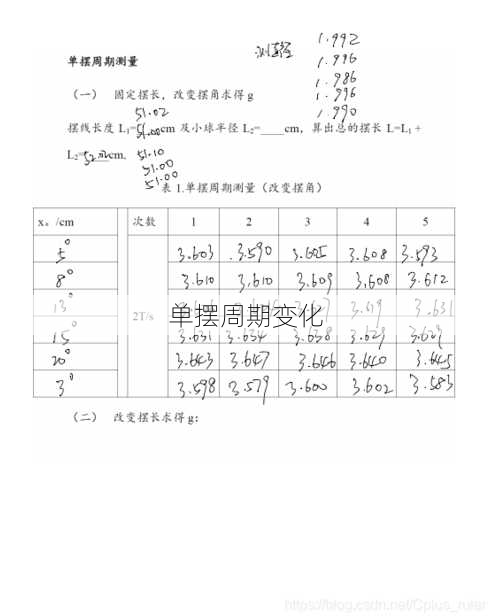 测直径
1.992
1.996
1.986
1.996
1.990
单摆周期测量
（一） 固定摆长，改变摆角求得 g
51.02
摆线长度 L₁=51.00cm 及小球半径 L₂=____cm，算出总的摆长 L=L₁ +
L₂=cm.
51.10
51.00
51.00
表 1.单摆周期测量（改变摆角）
/cm 次数 1 2 3 4 5
5° 3.603 3.590 3.605 3.608 3.593
8° 3.610 3.610 3.609 3.608 3.612
13° 2T/s 3.631
单摆周期变化
15° 3.631 3.634 3.638 3.629
20° 3.643 3.647 3.646 3.640 3.645
3° 3.598 3.579 3.600 3.602 3.583
（二） 改变摆长求得 g：
https://blog.csdn.net/Cplus_ruler